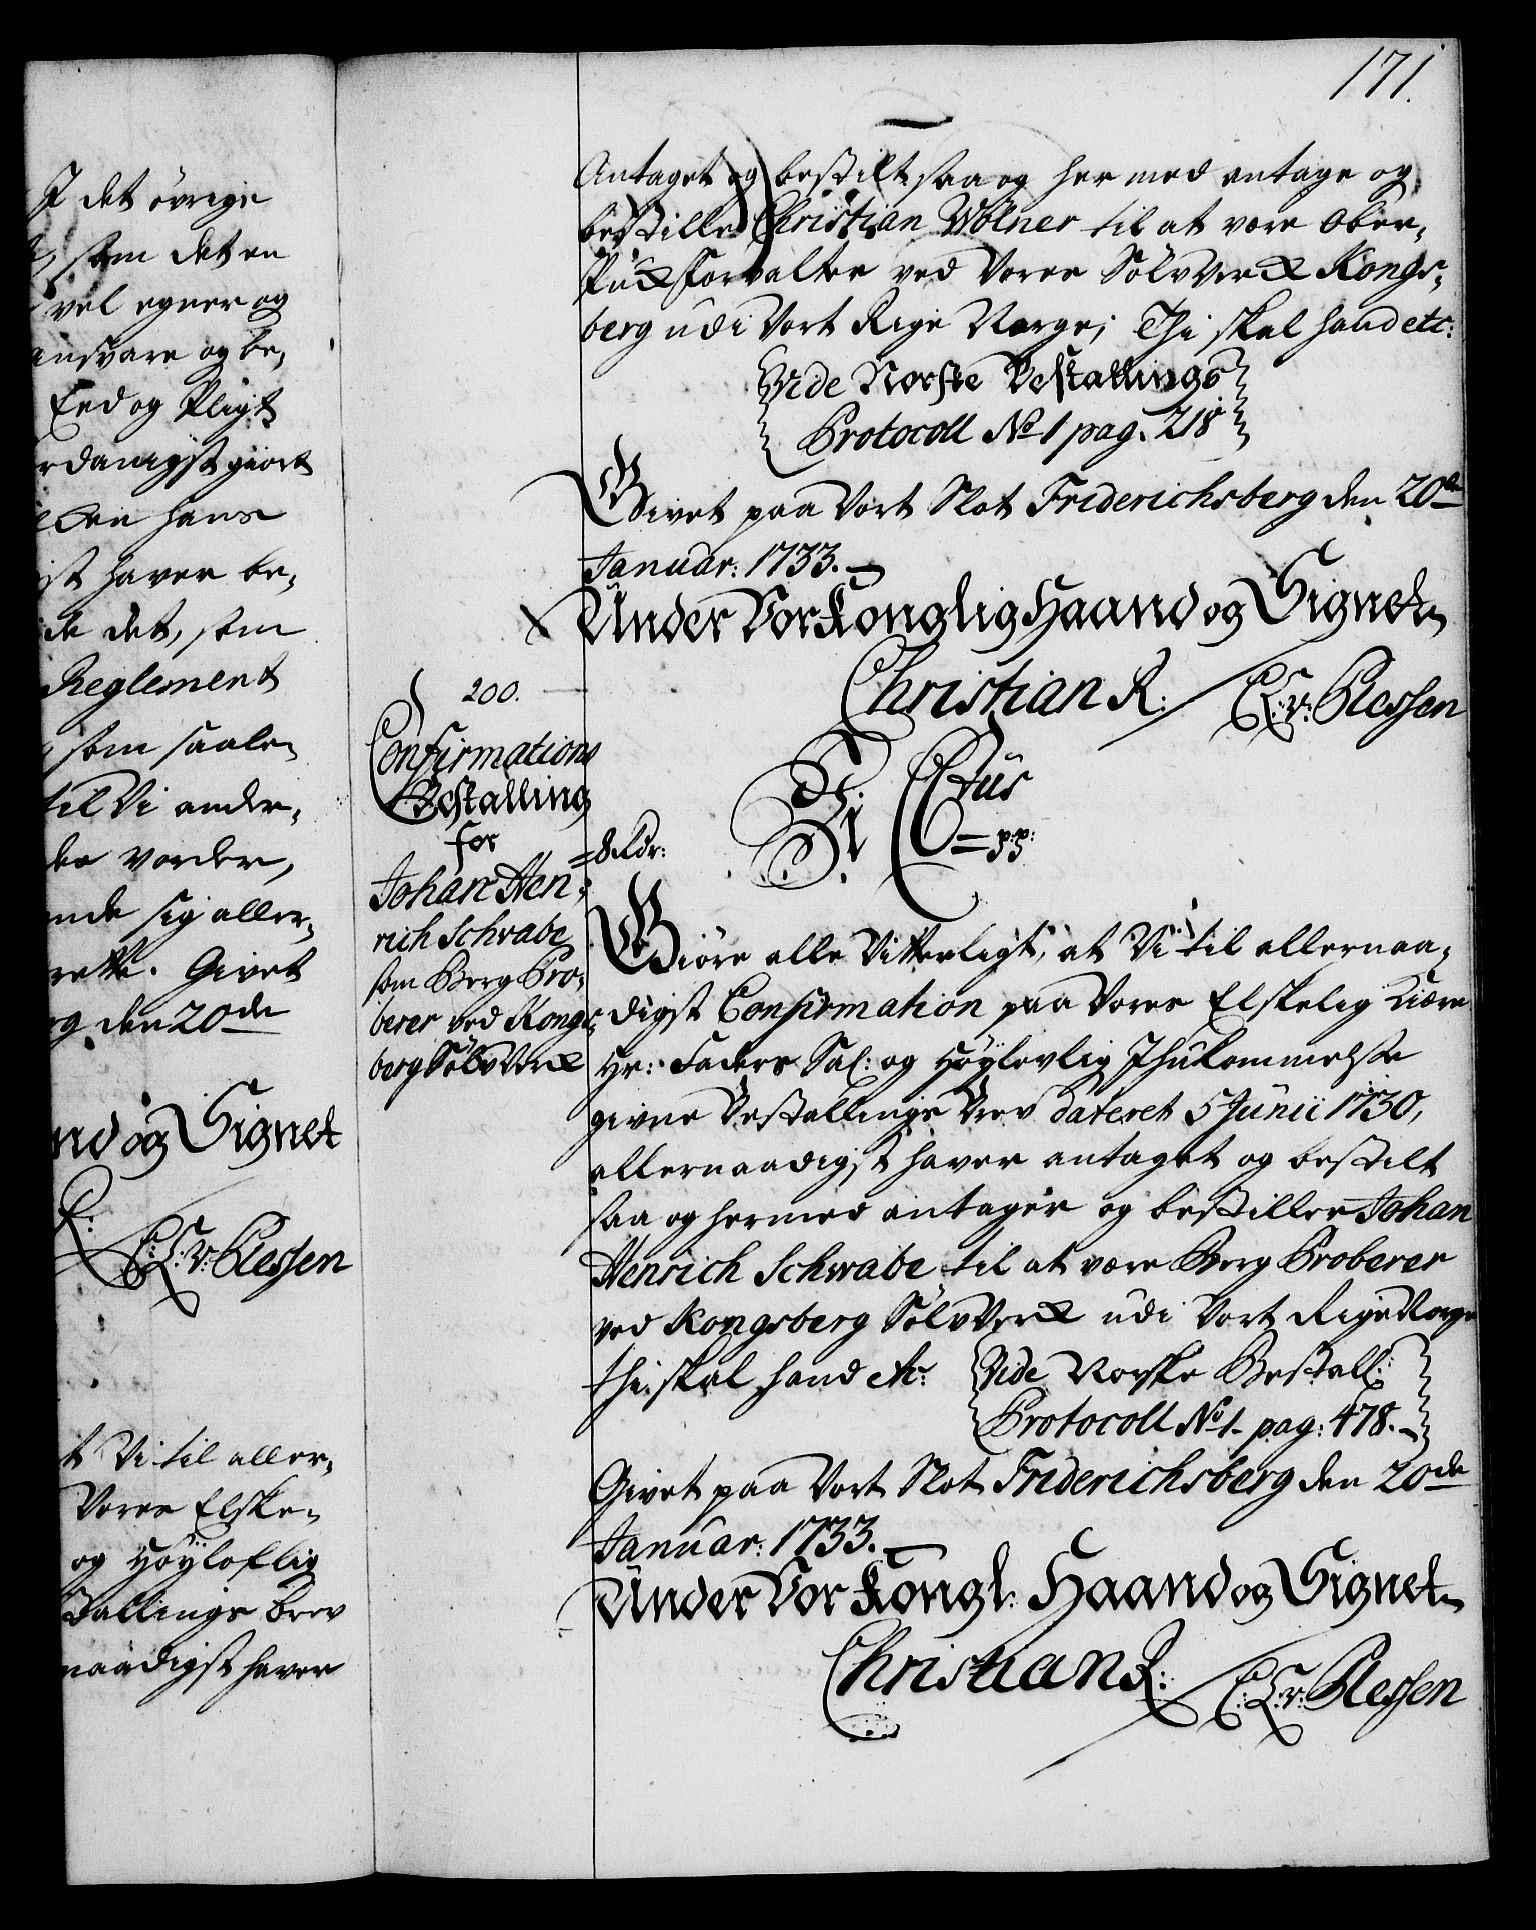 171.
I det övrige
som det en
vel egner og
ansvare og be,
Eed og Pligt
rdanigst giort
hans
ist haver be,
de det, som
Reglement
som saale,
til Vi ander,
vorder,
nde sig aller,
rette. Givet
rg den 20de
nd og Signet
R:
C: A: v: Plessen
t Vi til aller,
Vores Elske,
og Höyloflig
stallings Brev
naadigst haver
Antaget og bestilt, saa og her med antage og
bestille Christian Wölner til at være Ober,
StückForvalter ved Vores SölvVerck Kongs,
berg udi Vort Rige Norge; Thi skal hand etc:
Vide Norske Bestallings
Protocoll No 1 pag. 218
Givet paa Vort Slot Friderichsberg den 20de
Januar: 1733.
Under Vor Konglig Haand og Signet,
Christian R: C: A: v: Plessen
200.
Confirmations
Bestalling
for
Johan Hen,
rich Schwabe
som Berg Pro,
berer ved Kongs,
berg SölvVerck
8 Rdr:
Vi C6tus
= p:p:
Giöre alle Vitterligt, at Vi til allernaa,
digst Confirmation paa Vores Elskelig Kiære
Hr: Faders Sal: og Höylovlig Ihukommelse
givne Bestallings Brev dateret 5 Junii 1730,
allernaadigst haver antaget og bestilt
saa og hermed antager og bestiller Johan
Henrich Schwabe til at være Berg Proberer
ved Kongsberg SölvVerck udi Vort Rige Norge
thi skal hand etc: Vide Norske Bestall:
Protocoll No 1. pag: 478.
Givet paa Vort Slot Friderichsberg den 20de
Januar: 1733.
Under Vor Kongl: Haand og Signet,
Christian R: C: A: v: Plessen